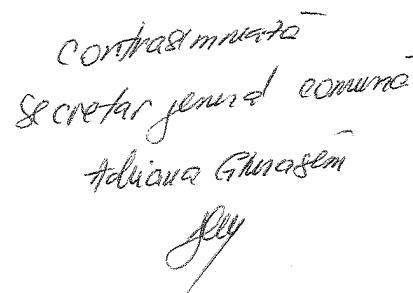 contrasemnează
secretar general comună
Adriana Gherasem